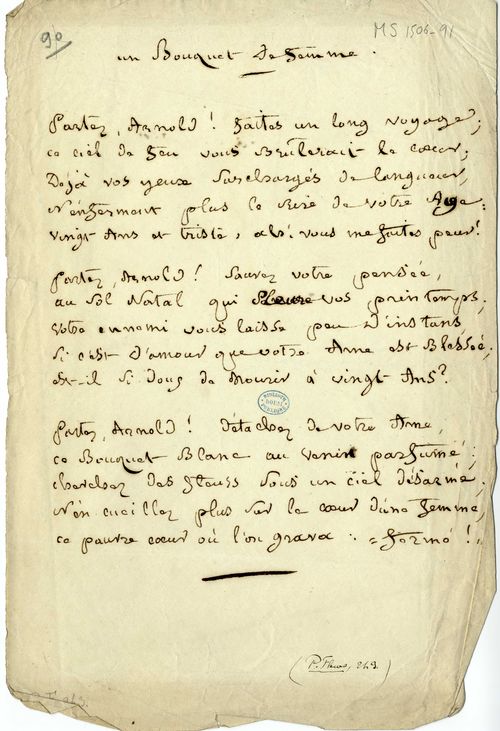 90
MS 1506-91
un Bouquet de femme.
Partez, Arnold ! faites un long voyage ;
ce ciel de feu vous Brulerait le cœur ;
Déjà vos yeux surchargés de langueur,
N'enferment plus le rire de votre Age :
vingt Ans et triste, ah ! vous me faites peur !
Partez, Arnold ! Sauvez votre pensée,
au sol Natal qui pleure vos printemps ;
votre ennemi vous laisse peu d'instans,
Si c'est d'amour que votre Ame est Blessée ;
est-il si doux de Mourir à vingt Ans ?
Partez, Arnold ! détachez de votre Ame,
ce Bouquet Blanc au venin parfumé ;
cherchez des fleurs sous un ciel désarmé ;
N'en cueillez plus sur le cœur d'une femme,
ce pauvre cœur où l'on grava : = fermé !
BIBLIOTHEQUE
DOUAI
(P. Fleurs, 243.)